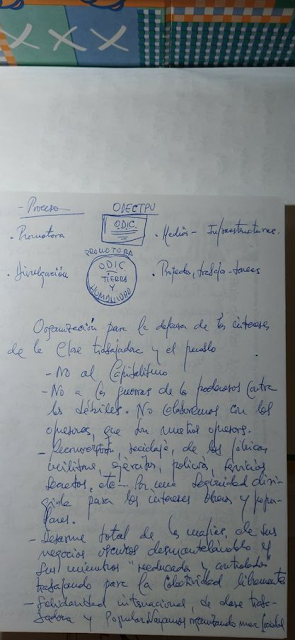 - Proceso ODECTPU
ODIC
• Promotora • Medios - Infraestructuras.
PROMOTORA
ODIC
TIERRA
Y
HUMANIDAD
• Divulgación • Projecto, trabajo - tareas
Organización para la defensa de los intereses
de la Clase trabajadora y el pueblo
- No al Capitalismo
- No a las guerras de los poderosos contra
los débiles. No colaboremos con los
opresores, que son nuestros opresores.
- Reconversión, reciclaje, de las fábricas
militares, ejercitos, policía, servicios
secretos, etc - Por una seguridad diri-
gida para los intereses obrera y popu-
lares.
- Desarme total de las mafias, de sus
negocios ocultos desmantelandolo y
sus miembros "reeducada y controlados"
trabajando para la colectividad libremente
- Solidaridad internacional, de clase traba-
jadora y Popular